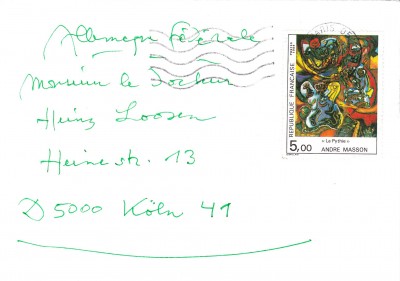 Allemagne Fédérale
Monsieur le Docteur
Heinz Loosen
Heinestr. 13
D 5000 Köln 41
REPUBLIQUE FRANÇAISE
5,00
« La Pythie »
ANDRE MASSON